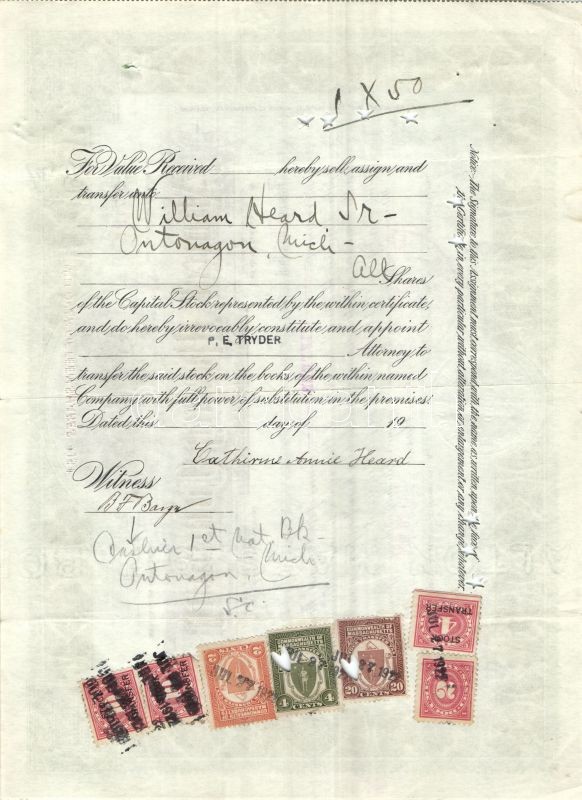 1 X 50
For Value Received hereby sell, assign and
transfer unto
William Heard Jr -
Ontonagon, Mich -
All Shares
of the Capital Stock represented by the within certificate,
and do hereby irrevocably constitute and appoint
P. E. TRYDER Attorney to
transfer the said stock on the books of the within named
Company with full power of substitution in the premises:
Dated, this day of 19
Cathirine Annie Heard
Witness
Cashier 1st Nat. Bk
Ontonagon, Mich
Notice: The Signature to this Assignment must correspond with the name as written upon the face
of the Certificate in every particular without alteration or enlargement or any change whatever.
STOCK
TRANSFER
COMMONWEALTH OF
MASSACHUSETTS
2 2
COMMONWEALTH OF
MASSACHUSETTS
4 CENTS 4
COMMONWEALTH OF
MASSACHUSETTS
20 CENTS 20